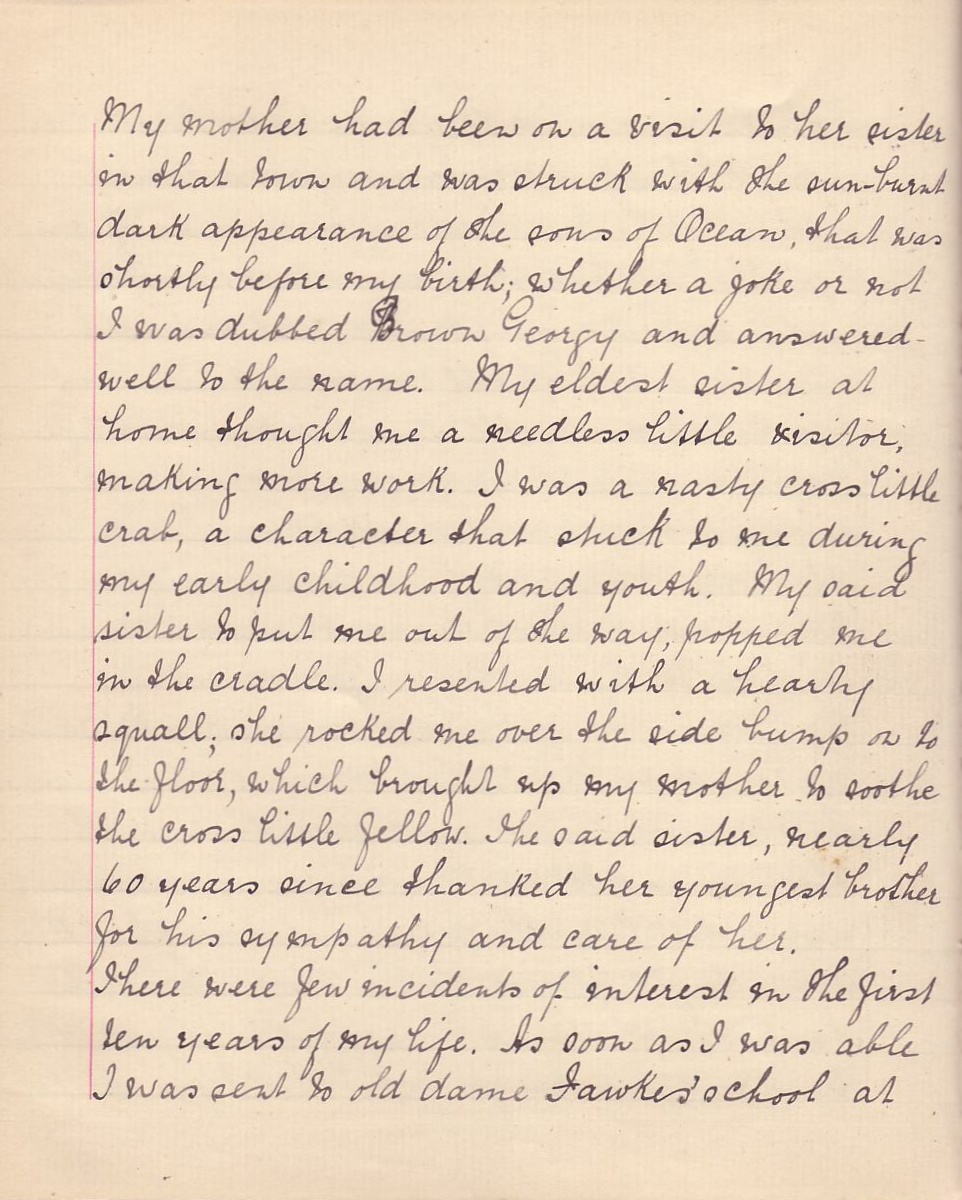 My mother had been on a visit to her sister
in that town and was struck with the sun-burnt
dark appearance of the sons of Ocean, that was
shortly before my birth; whether a joke or not
I was dubbed Brown Georgy and answered
well to the name. My eldest sister at
home thought me a needless little visitor,
making more work. I was a nasty cross little
crab, a character that stuck to me during
my early childhood and youth. My said
sister to put me out of the way, popped me
in the cradle. I resented with a hearty
squall; she rocked me over the side bump on to
the floor, which brought up my mother to soothe
the cross little fellow. The said sister, nearly
60 years since thanked her youngest brother
for his sympathy and care of her.
There were few incidents of interest in the first
ten years of my life. As soon as I was able
I was sent to old dame Fawkes' school at